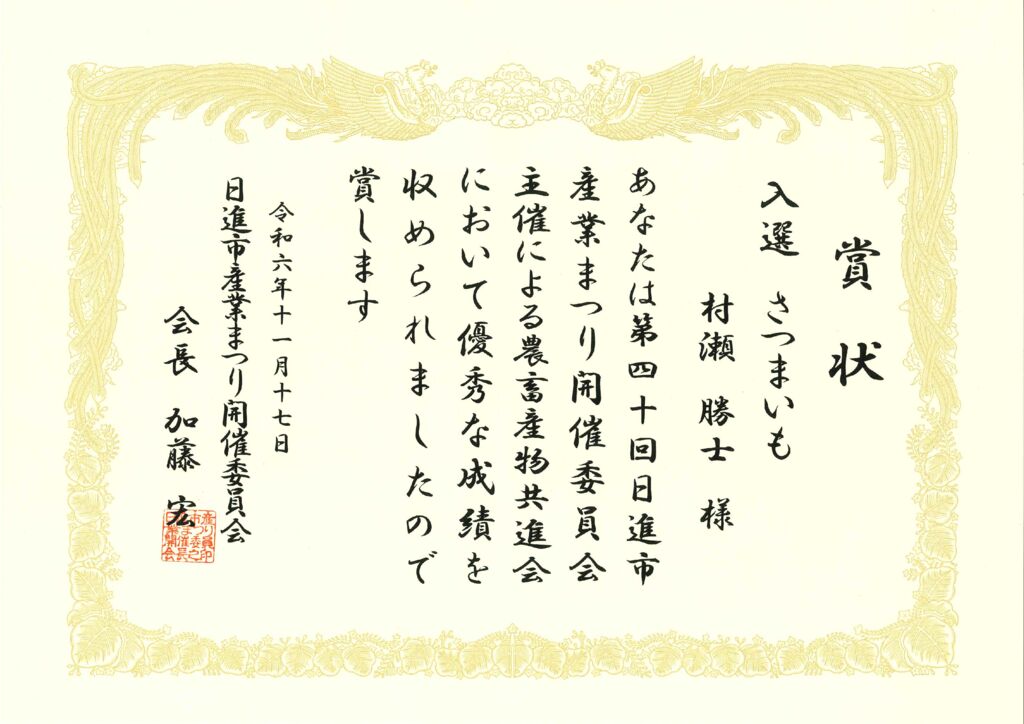 賞状
入選 さつまいも
村瀬 勝士 様
あなたは第四十回日進市
産業まつり開催委員会
主催による農畜産物共進会
において優秀な成績を
収められましたので
賞します
令和六年十一月十七日
日進市産業まつり開催委員会
会長 加藤 宏